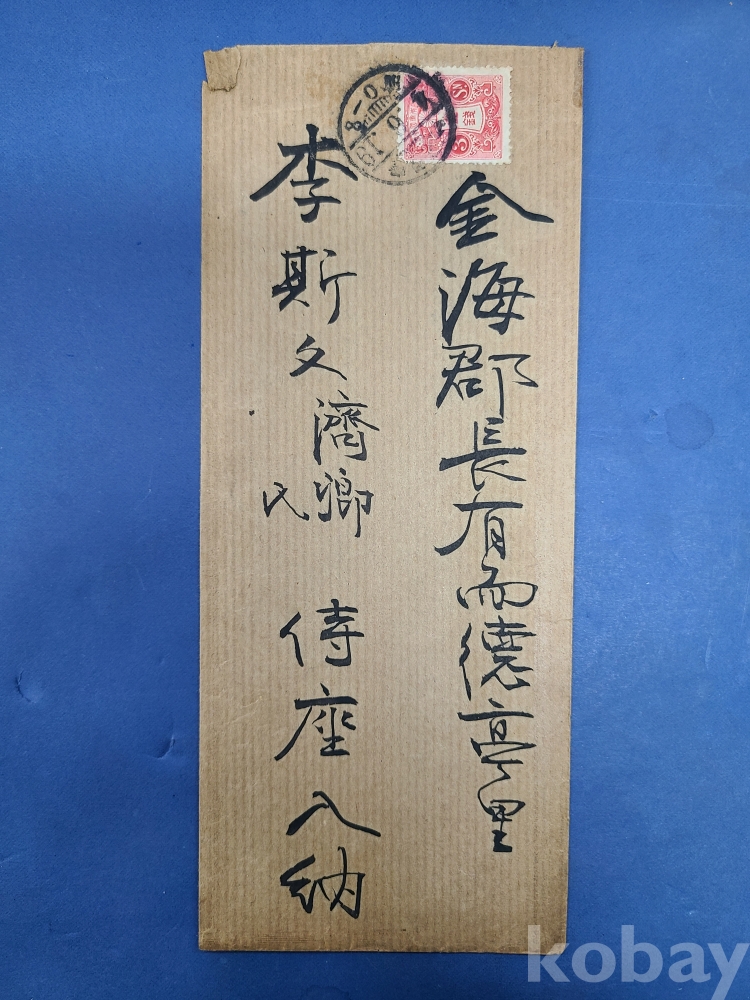 金海郡長有面德亭里
李斯文濟卿氏 侍座入納
kobay